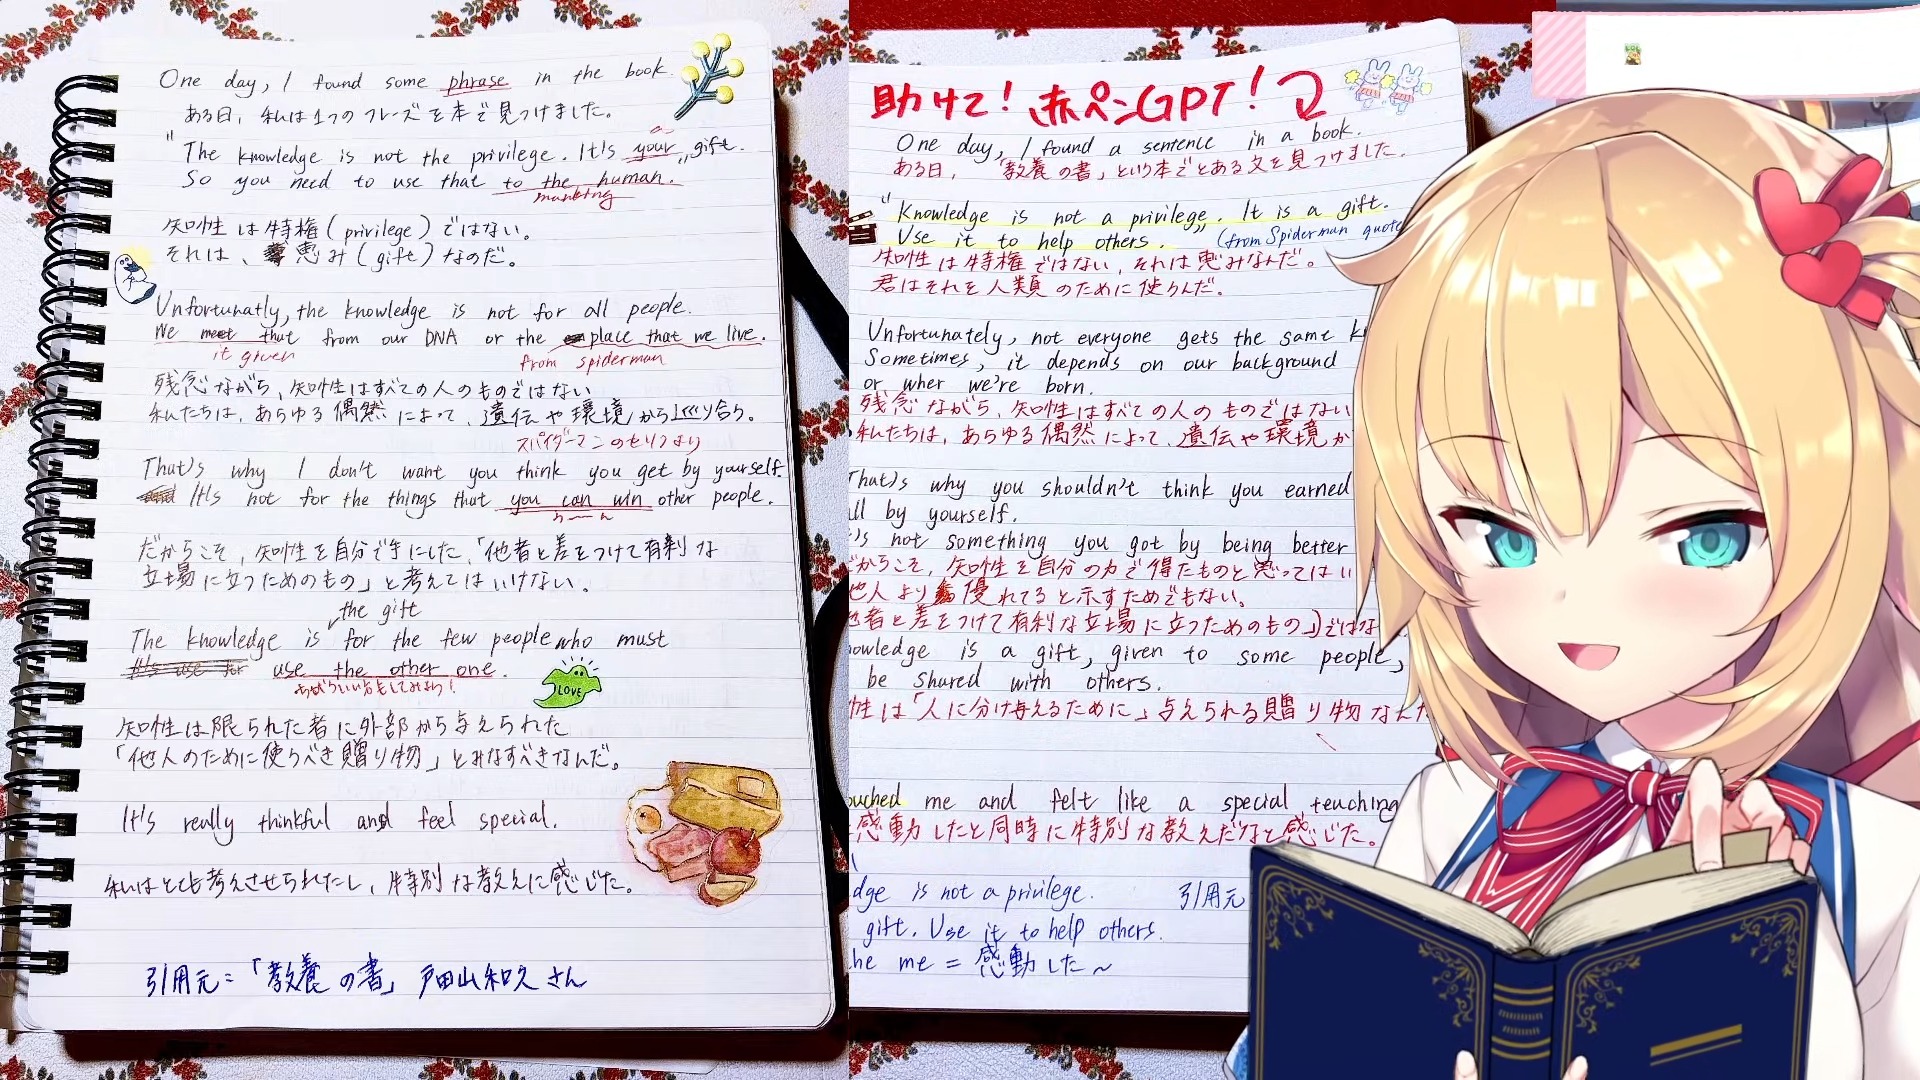 One day, I found some phrase in the book.
ある日、私は1つのフレーズを本で見つけました。
"The knowledge is not the privilege. It's your gift.
a
So you need to use that to the human."
mankind
知性は特権(privilege)ではない。
それは、恵み(gift)なのだ。
Unfortunatly, the knowledge is not for all people.
We meet that from our DNA or the place that we live.
it given
from spiderman
残念ながら、知性はすべての人のものではない
私たちは、あらゆる偶然によって、遺伝や環境から巡り合う。
スパイダーマンのセリフより
That's why I don't want you think you get by yourself.
It's not for the things that you can win other people.
だからこそ、知性を自分で手にした、「他者と差をつけて有利な
立場に立つためのもの」と考えてはいけない。
the gift
The knowledge is for the few people who must
It's use for use the other one.
LOVE
知性は限られた者に外部から与えられた
「他人のために使うべき贈り物」とみなすべきなんだ。
It's really thinkful and feel special.
私はとても考えさせられたし、特別な教えに感じた。
引用元=「教養の書」戸田山和久さん
助けて!赤ペンGPT!
One day, I found a sentence in a book.
ある日、「教養の書」という本でとある文を見つけました。
"Knowledge is not a privilege. It is a gift.
Use it to help others." (from Spiderman quote
知性は特権ではない、それは恵みなんだ。
君はそれを人類のために使うんだ。
Unfortunately, not everyone gets the same
Sometimes, it depends on our background
or wher we're born.
残念ながら、知性はすべての人のものではない
私たちは、あらゆる偶然によって、遺伝や環境か
That's why you shouldn't think you earned
all by yourself.
's not something you got by being better
だからこそ、知性を自分の力で得たものと思ってはい
他人より優れてると示すためでもない。
他者と差をつけて有利な立場に立つためのもの」)ではな
owledge is a gift, given to some people,
be shared with others.
性は「人に分け与えるために」与えられる贈り物なんだ
ouched me and felt like a special teaching
感動したと同時に特別な教えだなと感じた。
dge is not a privilege.
引用元
gift. Use it to help others.
he me = 感動した~